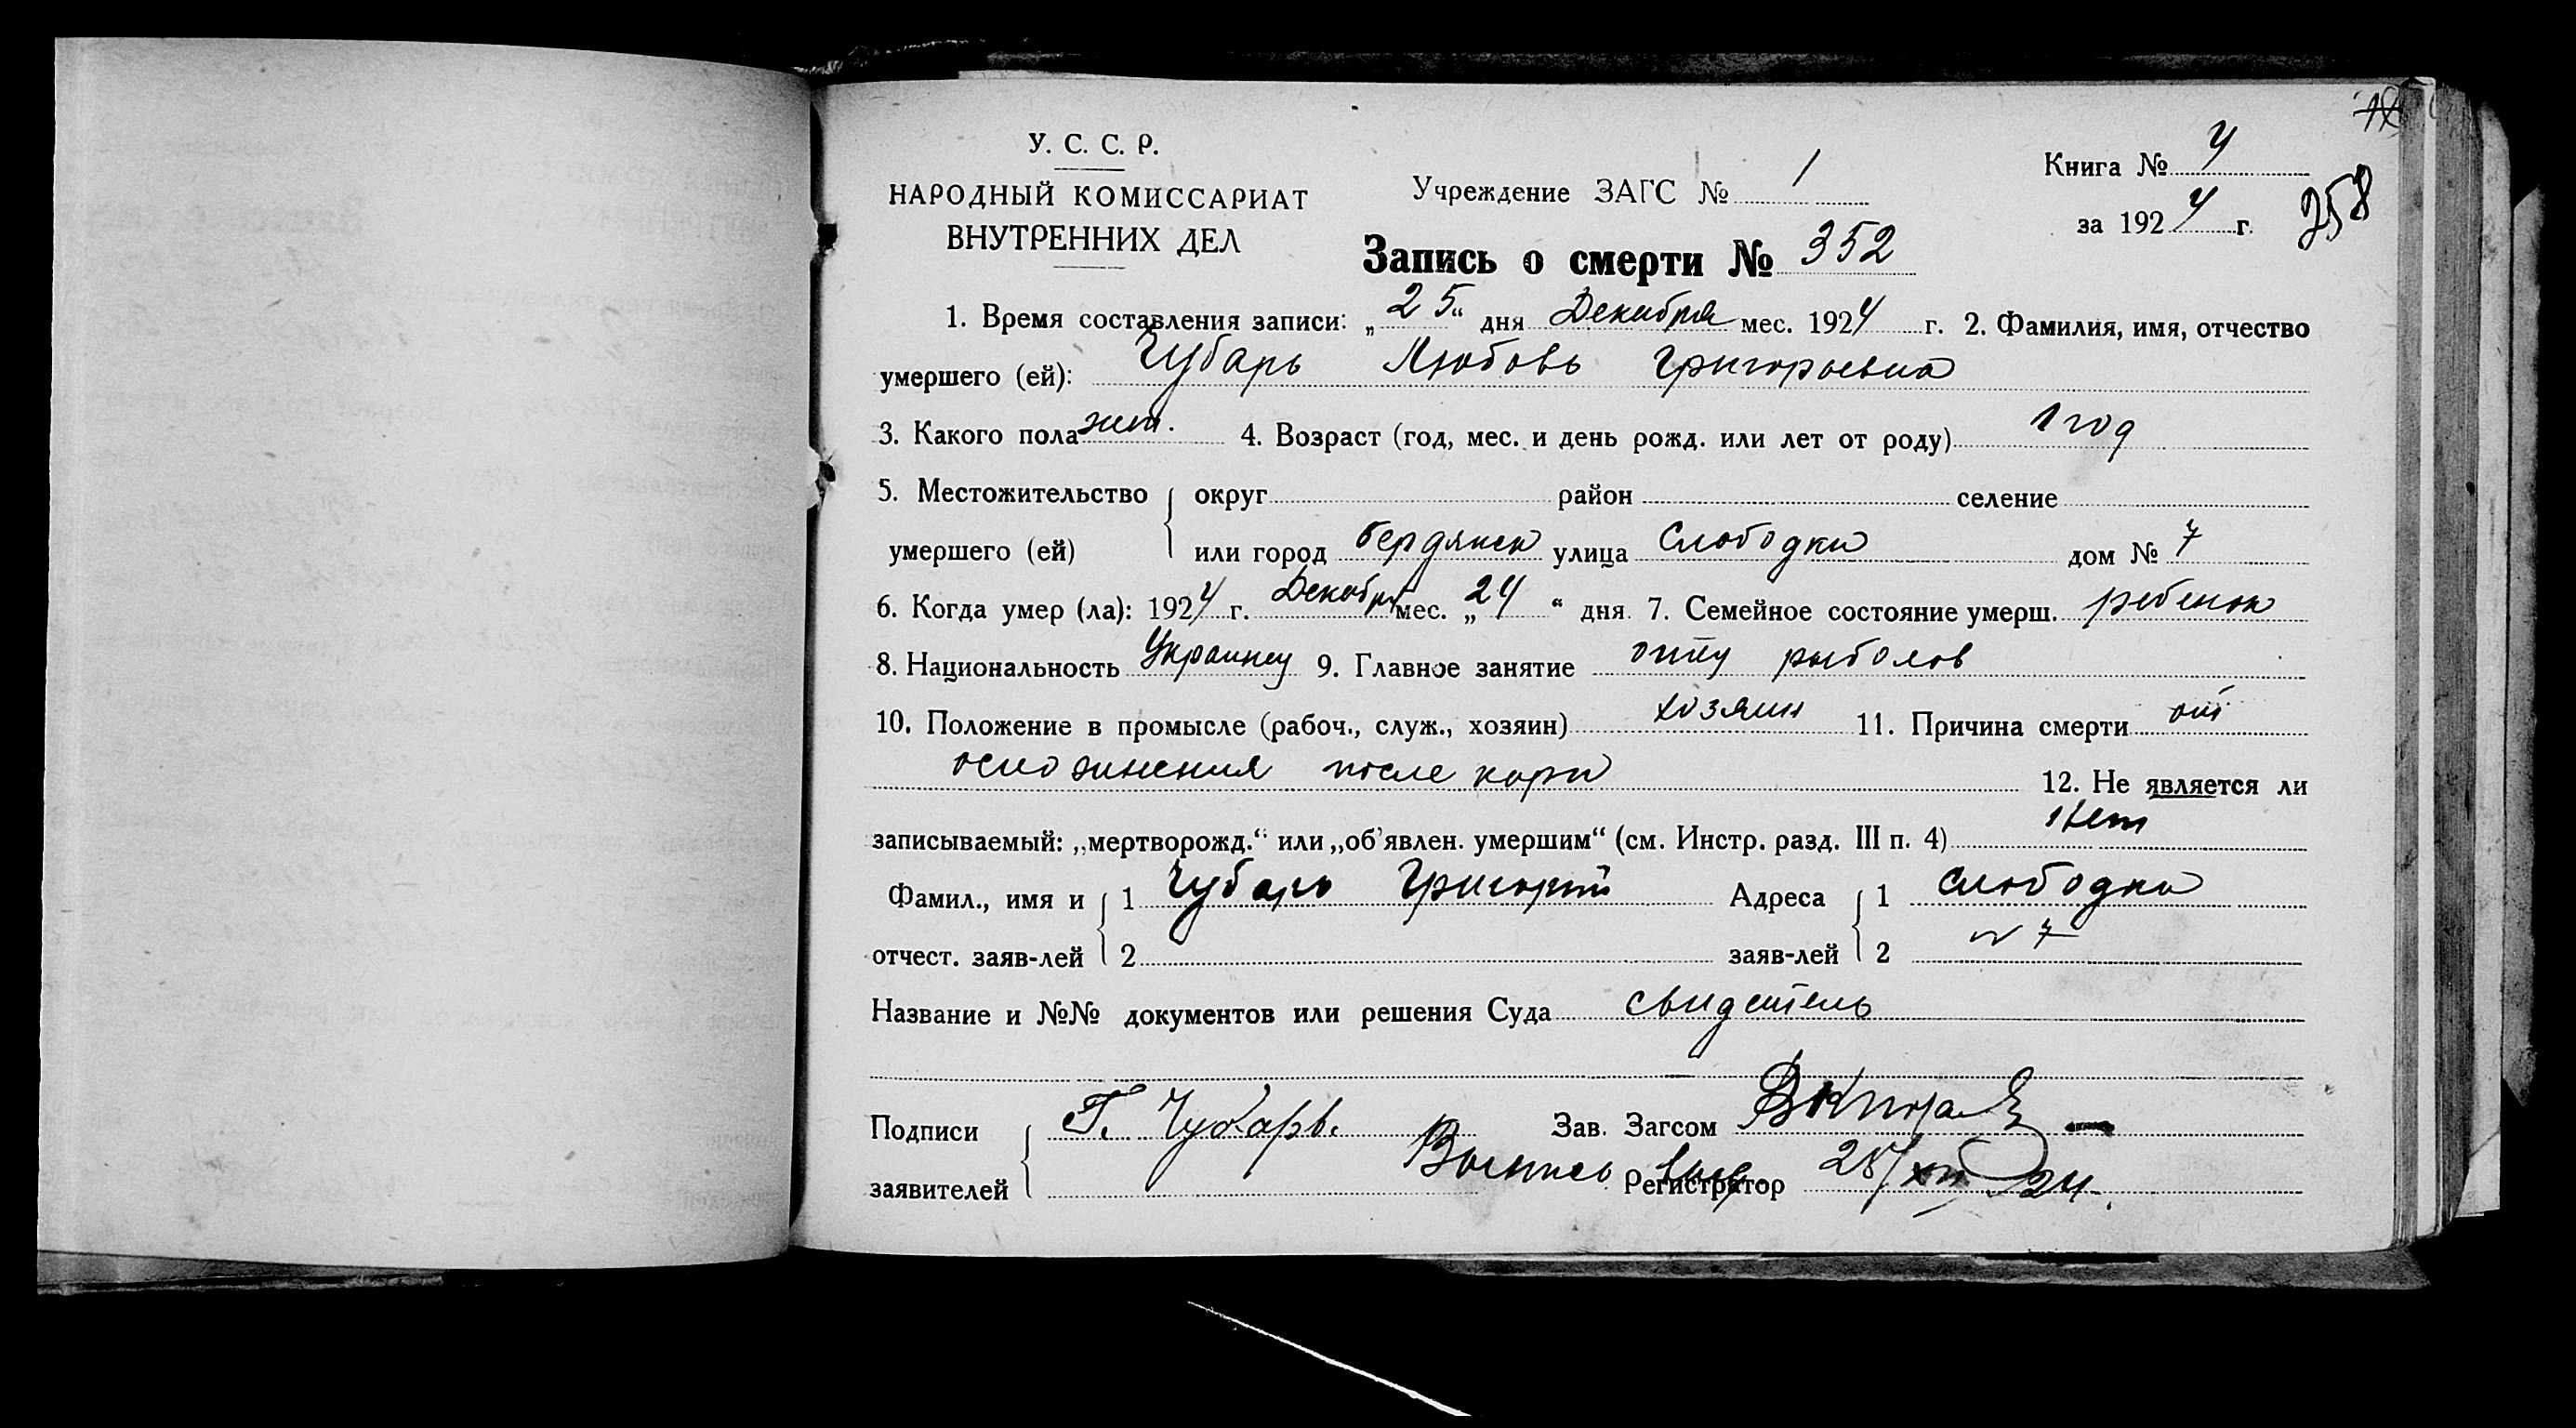 У. С. С. Р.
НАРОДНЫЙ КОМИССАРИАТ
ВНУТРЕННИХ ДЕЛ
Учреждение ЗАГС № 1
Книга № 4
за 1924 г.
258
Запись о смерти № 352
1. Время составления записи: „25“ дня Декабря мес. 1924 г. 2. Фамилия, имя, отчество
умершего (ей): Чубарь Любовь Григорьевна
3. Какого пола жен. 4. Возраст (год, мес. и день рожд. или лет от роду) 1 год
5. Местожительство { округ район селение
умершего (ей) или город Бердянск улица Слободка дом № 7
6. Когда умер (ла): 1924 г. Декабря мес. „24“ дня. 7. Семейное состояние умерш. ребенок
8. Национальность Украинец 9. Главное занятие отец рыболов
10. Положение в промысле (рабоч., служ., хозяин) хозяин 11. Причина смерти от
осложнения после кори 12. Не является ли
записываемый: „мертворожд.“ или „об'явлен. умершим“ (см. Инстр. разд. III п. 4) Нет
Фамил., имя и { 1 Чубарь Григорий Адреса { 1 Слободка
отчест. заяв-лей 2 заяв-лей 2 № 7
Название и №№ документов или решения Суда свидетель
Подписи { Г. Чубарь. Зав. Загсом
заявителей Выпись выд. Регистратор 25/XII 24.